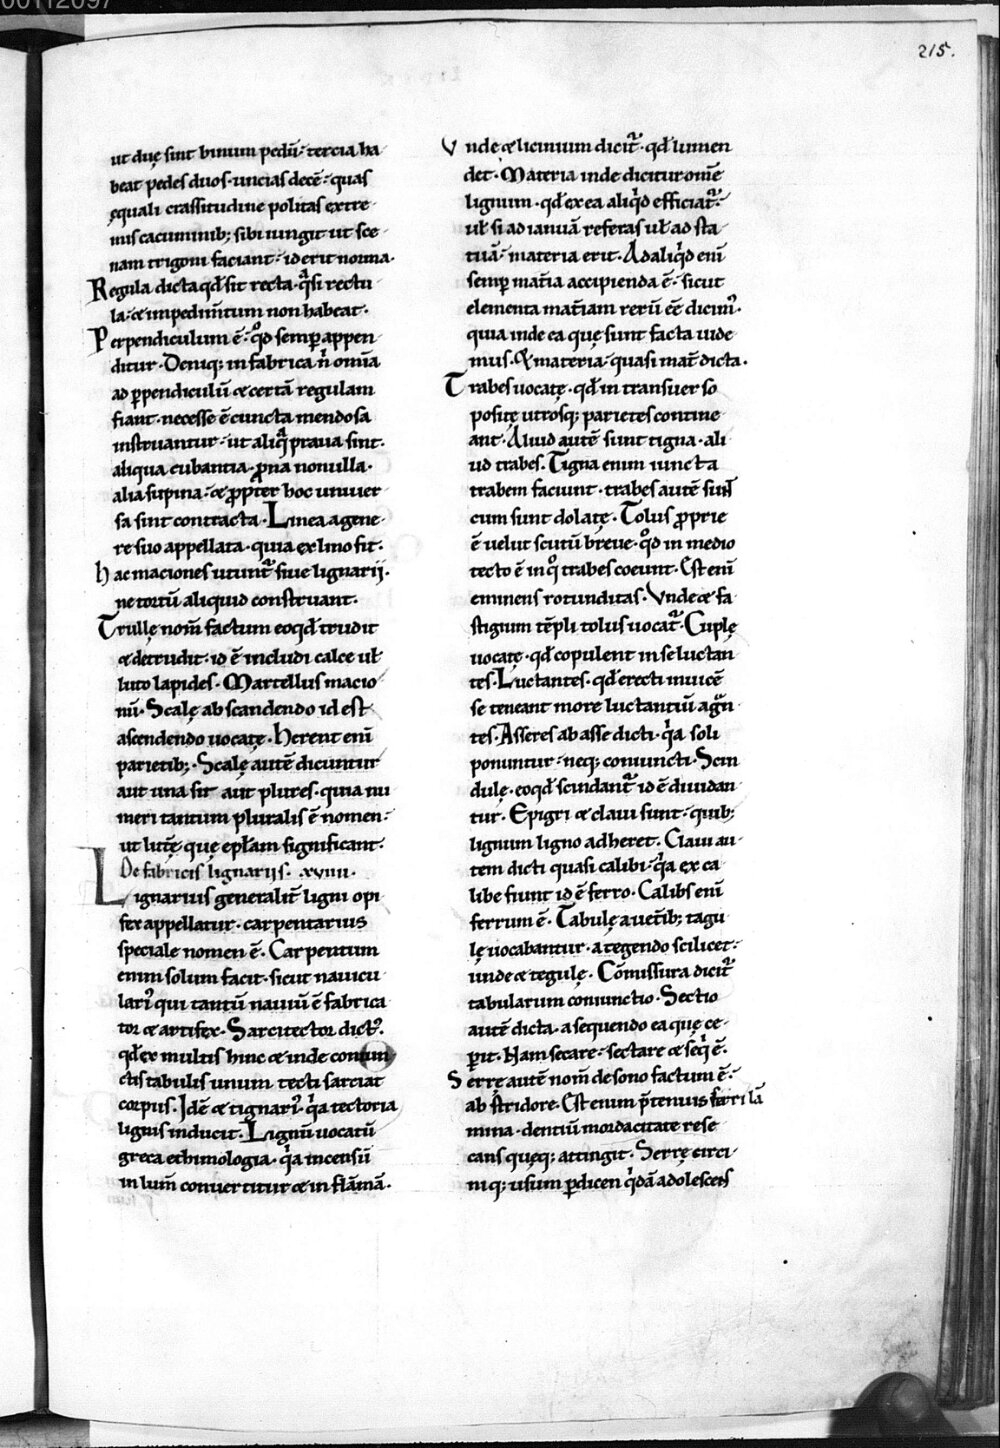 00112097
215.
ut duę sint binum pedū· tercia ha
beat pedes duos· uncias decē· quas
ęquali crassitudine politas extre
mis cacuminib; sibi iungit ut sce
nam trigoni faciant· id erit norma·
Regula dicta qđ sit recta· qͣsi rectu
la· & impedimtum non habeat·
Perpendiculum ē· qͦd semꝑ appen
ditur· Deniq; in fabrica nͥ omīa
ad ꝑpendiculū & certā regulam
fiant· necesse ē cuncta mendosa
instruantur· ut aliqͣ praua sint·
aliqua cubantia· ꝓna nonulla·
alia supina· & ꝓpter hoc uniuer
sa sint contracta· Linea a gene
re suo appellata· quia ex lino fit·
hac maciones utunt̄ siue lignarij·
ne tortū aliquid construant·
Trullę nom̄ factum eo qđ trudit
& detrudit· id ē includi calce uł
luto lapides· Martellus macio
nū· Scalę ab scandendo id est
ascendendo uocatę· herent enī
parietib;· Scalę autē dicuntur
aut una sit aut plures· quia nu
meri tantum pluralis ē nomen·
ut lutę· que epłam significant·
De fabricis lignarijs· xviiii·
Lignarius generalit̄ ligni opi
fex appellatur· carpentarius
speciale nomen ē· Carpentum
enim solum facit· sicut nauicu
lari᾽ qui tantū nauiū ē fabrica
tor & artifex· Sarcitector dict᾽·
qđ ex multis hinc & inde coniun
ctis tabulis unum tecti sarciat
corpus· Idē & tignari᾽· qͥa tectoria
lignis inducit· Lignū uocatū
greca ethimologia· qͥa incensū
in lum̄ conuertitur & in flāmā·
Vnde & licinium dicit̄· qđ lumen
det· Materia inde dicitur omē
lignum· qđ ex ea aliqͥd efficiat̄·
uł si ad ianuā referas uł ad sta
tuā· materia erit· Ad aliqͥd enī
semꝑ mat̄ia accipienda ē· sicut
elementa mat̄iam rerū eē dicim᾽·
quia inde ea quę sunt facta uide
mus· & materia· quasi mat̄ dicta·
Trabes uocatę· qđ in transuerso
positę utrosq; parietes contine
ant· Aliud autē sunt tigna· ali
ud trabes· Tigna enim iuncta
trabem faciunt· trabes autē sunt
cum sunt dolatę· Tolus ꝓprie
ē uelut scutū breue· qͦd in medio
tecto ē in qͦ trabes coeunt· Est enī
eminens rotunditas· Vnde & fa
stigium tēpli tolus uocat̄· Cuplę
uocatę· qđ copulent in se luctan
tes· Luctantes· qđ erecti inuicē
se teneant more luctantiū agͣn
tes· Asseres ab asse dicti· qͥa soli
ponuntur· neq; coniuncti· Scin
dulę· eo qđ scindant̄ id ē diuidan
tur· Epigri & claui sunt· quib;
lignum ligno adheret· Claui au
tem dicti quasi calibi· qͥa ex ca
libe fiunt id ē ferro· Calibs enī
ferrum ē· Tabulę a ueterib; tagu
lę uocabantur· a tegendo scilicet·
unde & tegulę· Cōmissura dicit̄
tabularum coniunctio· Sectio
autē dicta· a sequendo ea quę ce
ꝑit· Nam secare· sectare & seqͥ ē·
Serrę autē nom̄ de sono factum ē·
ab stridore· Est enim p̄tenuis ferri lā
mina· dentiū mordacitate rese
cans quęq; attingit· Serrę circi
niq; usum ꝑdicen qͥdā adolescens